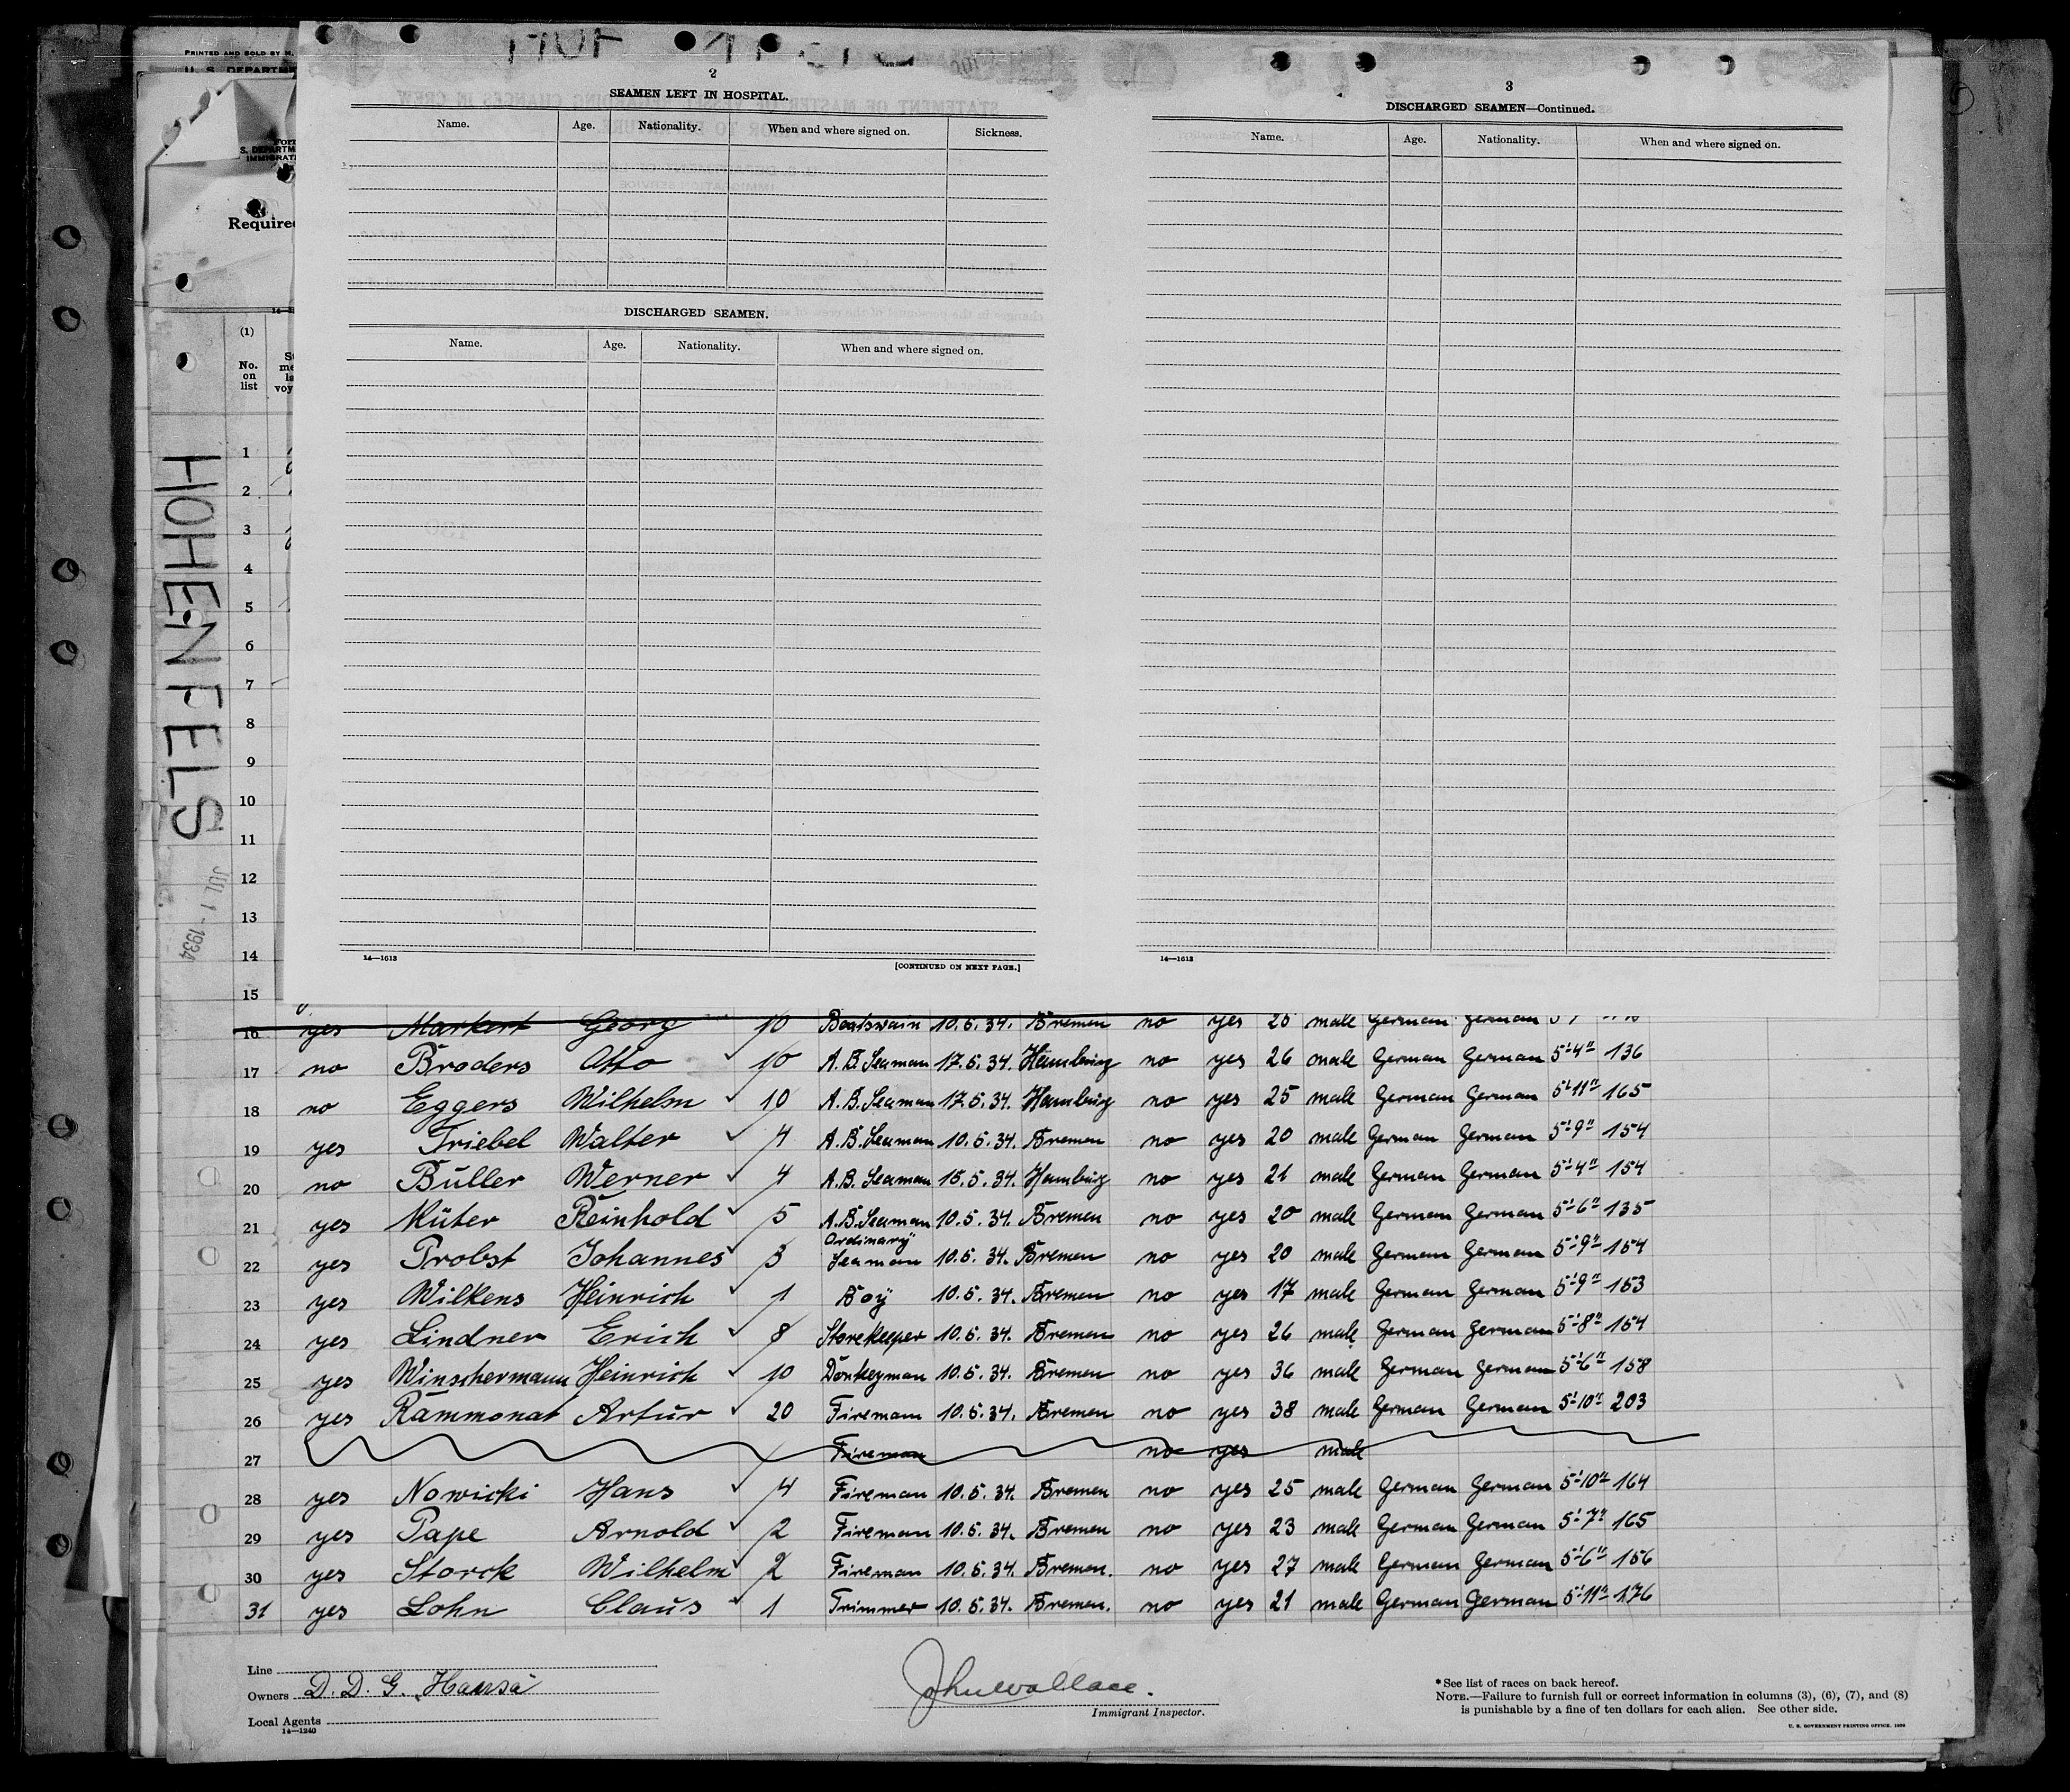 PRINTED AND SOLD BY
U. S. DEPARTM
S. DEPARTM
IMMIGRATI
Required
(1)
No.
on
list
HOHENFELS
JUL 1 - 1934
2
SEAMEN LEFT IN HOSPITAL.
Name. Age. Nationality. When and where signed on. Sickness.
DISCHARGED SEAMEN.
Name. Age. Nationality. When and where signed on.
14—1613
[CONTINUED ON NEXT PAGE.]
3
DISCHARGED SEAMEN—Continued.
Name. Age. Nationality. When and where signed on.
14—1613
1
2
3
4
5
6
7
8
9
10
11
12
13
14
15
16 yes Markert Georg 10 Boatswain 10.5.34. Bremen no yes 25 male German German
17 no Broders Otto 10 A.B. Seaman 17.5.34. Hamburg no yes 26 male German German 5'-4" 136
18 no Eggers Wilhelm 10 A.B. Seaman 17.5.34. Hamburg no yes 25 male German German 5'-11" 165
19 yes Triebel Walter 4 A.B. Seaman 10.5.34. Bremen no yes 20 male German German 5'-9" 154
20 no Büller Werner 4 A.B. Seaman 15.5.34. Hamburg no yes 21 male German German 5'-4" 154
21 yes Müter Reinhold 5 A.B. Seaman 10.5.34. Bremen no yes 20 male German German 5'-6" 135
22 yes Probst Johannes 3 Ordinary Seaman 10.5.34. Bremen no yes 20 male German German 5'-9" 154
23 yes Wilkens Heinrich 1 Boy 10.5.34. Bremen no yes 17 male German German 5'-9" 153
24 yes Lindner Erich 8 Storekeeper 10.5.34. Bremen no yes 26 male German German 5'-8" 154
25 yes Winschermann Heinrich 10 Donkeyman 10.5.34. Bremen no yes 36 male German German 5'-6" 158
26 yes Rammonat Artur 20 Fireman 10.5.34. Bremen no yes 38 male German German 5'-10" 203
27 Fireman no yes male
28 yes Nowicki Hans 4 Fireman 10.5.34. Bremen no yes 25 male German German 5'-10" 164
29 yes Pape Arnold 2 Fireman 10.5.34. Bremen no yes 23 male German German 5'-7" 165
30 yes Storck Wilhelm 2 Fireman 10.5.34. Bremen. no yes 27 male German German 5'-6" 156
31 yes Lohn Claus 1 Trimmer 10.5.34. Bremen. no yes 21 male German German 5'-11" 176
Line
Owners D. D. G. Hansa
Local Agents
14—1240
John Wallace.
Immigrant Inspector.
*See list of races on back hereof.
NOTE.—Failure to furnish full or correct information in columns (3), (6), (7), and (8)
is punishable by a fine of ten dollars for each alien. See other side.
U. S. GOVERNMENT PRINTING OFFICE.